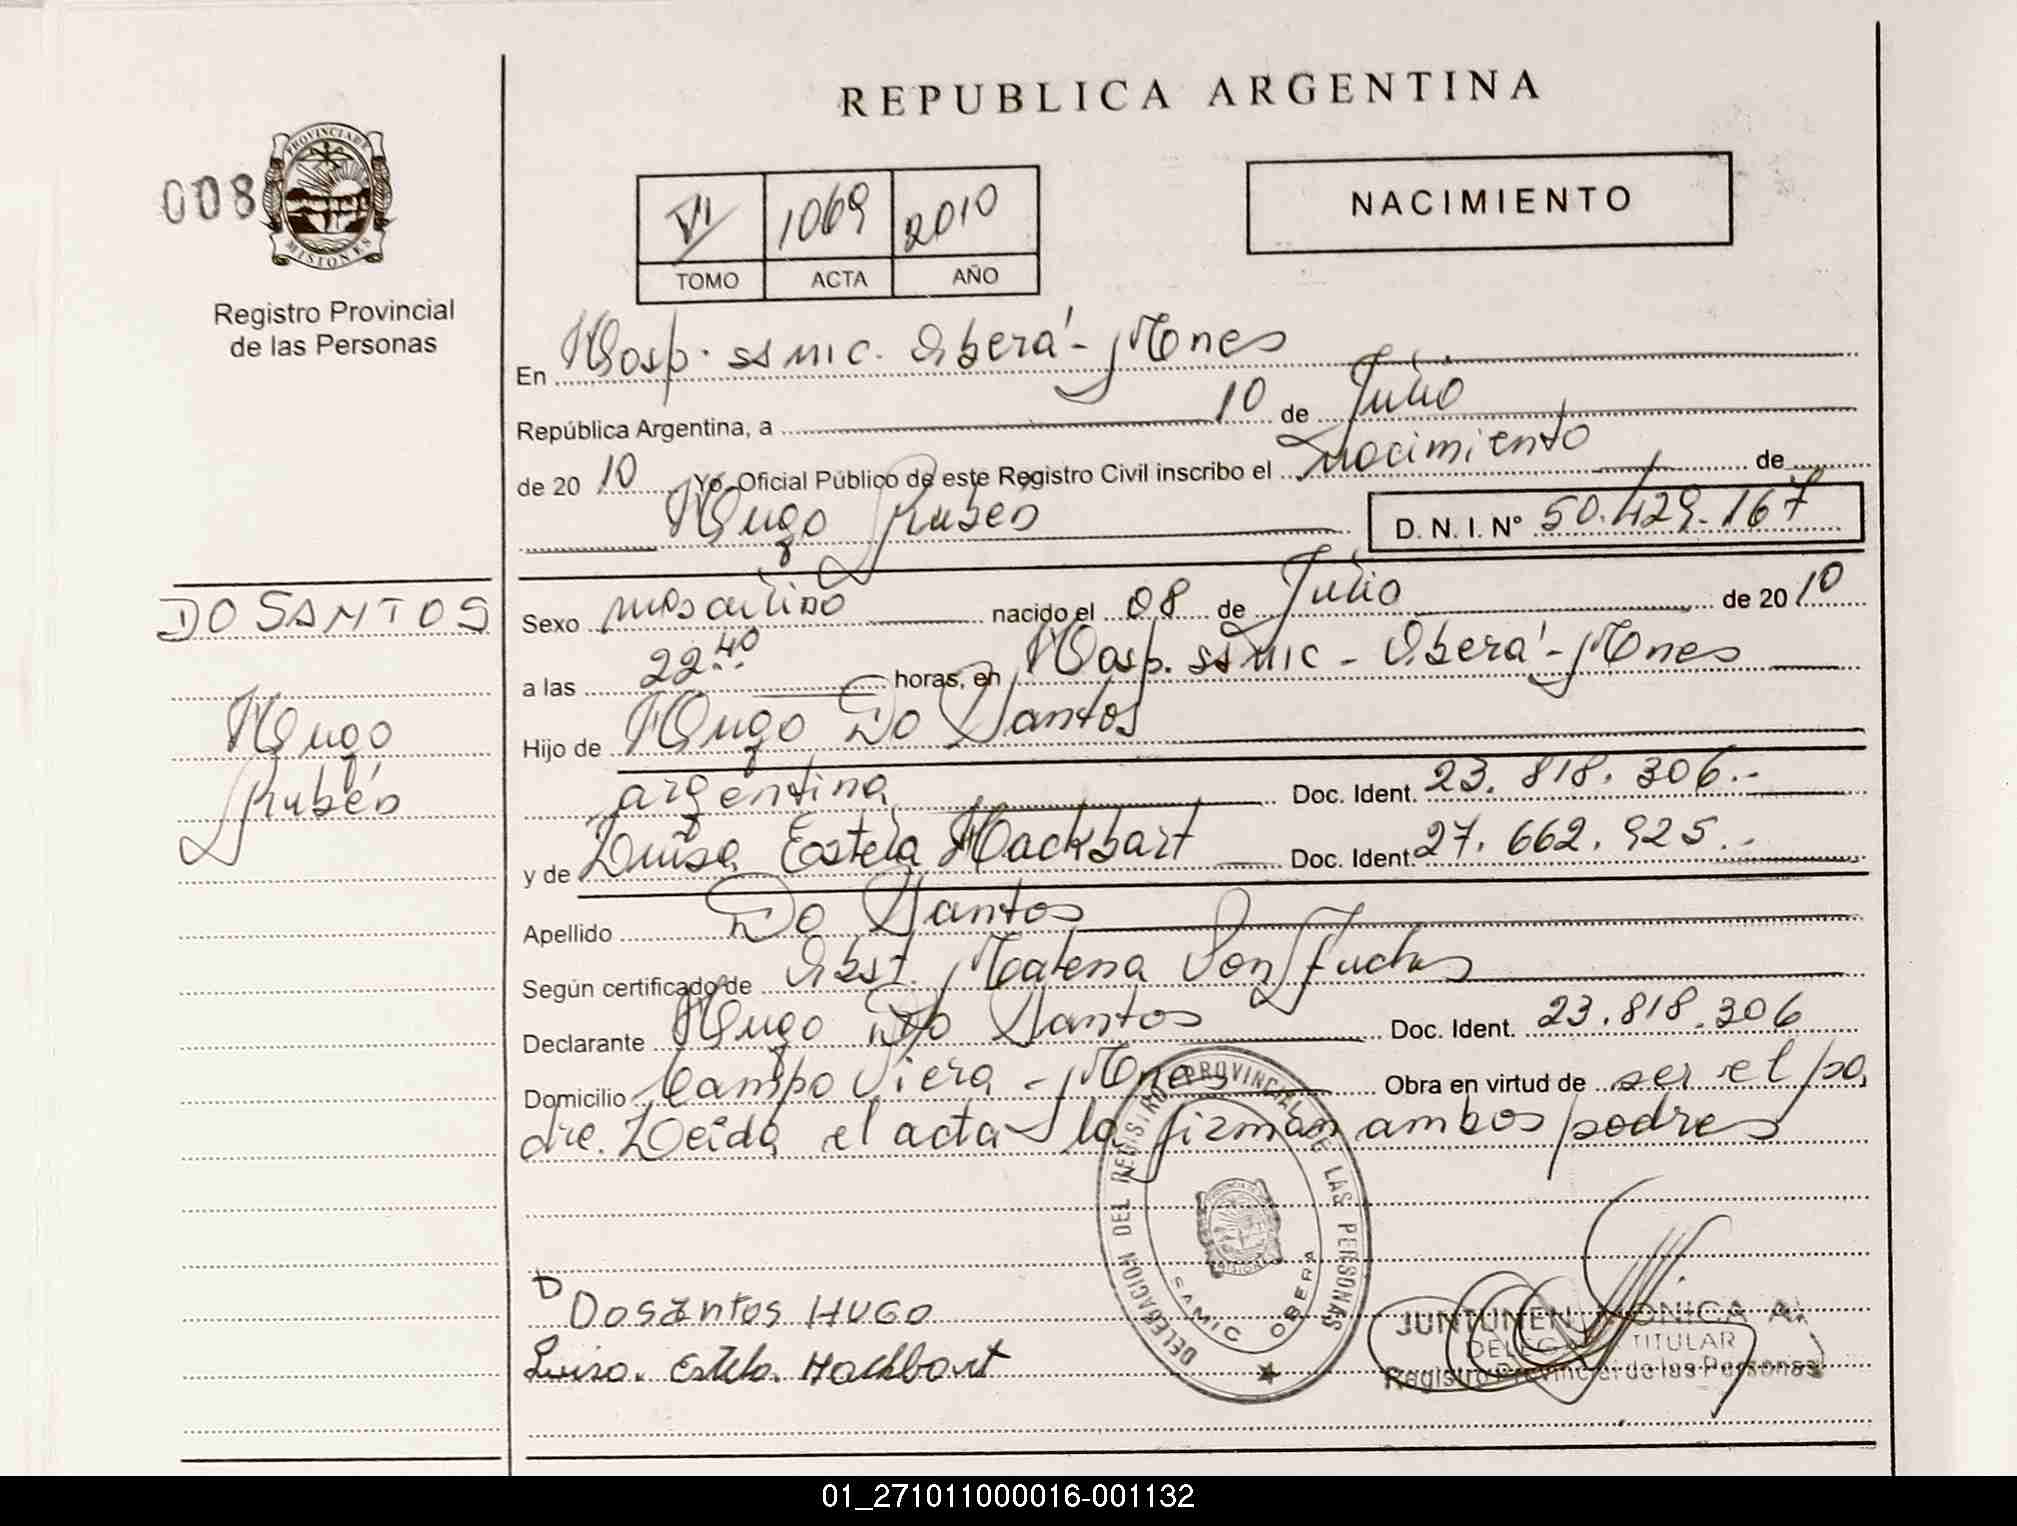 REPUBLICA ARGENTINA
008
PROVINCIA DE
MISIONES
Registro Provincial
de las Personas
VI 1069 2010
TOMO ACTA AÑO
NACIMIENTO
En Hosp. SAMIC. Oberá - Mnes
República Argentina, a 10 de Julio
de 20 10 Yo, Oficial Público de este Registro Civil inscribo el nacimiento de
Hugo Rubén D. N. I. N° 50.429.167
DO SANTOS
Hugo
Rubén
Sexo masculino nacido el 08 de Julio de 20 10
a las 22.40 horas, en Hosp. SAMIC - Oberá - Mnes
Hijo de Hugo Do Santos
argentina Doc. Ident. 23.818.306.-
y de Luisa Estela Hackbart Doc. Ident. 27.662.925.-
Apellido Do Santos
Según certificado de Obst. Malena Von Fuchs
Declarante Hugo Do Santos Doc. Ident. 23.818.306
Domicilio Campo Viera - Mnes Obra en virtud de ser el pa
dre. Leída el acta la firman ambos padres
DELEGACION DEL REGISTRO PROVINCIAL DE LAS PERSONAS
SAMIC OBERA
D DOSANTOS HUGO
Luisa. Estela. Hackbart
JUNTUNEN MONICA A.
DELEGADA TITULAR
Registro Provincial de las Personas
01_271011000016-001132